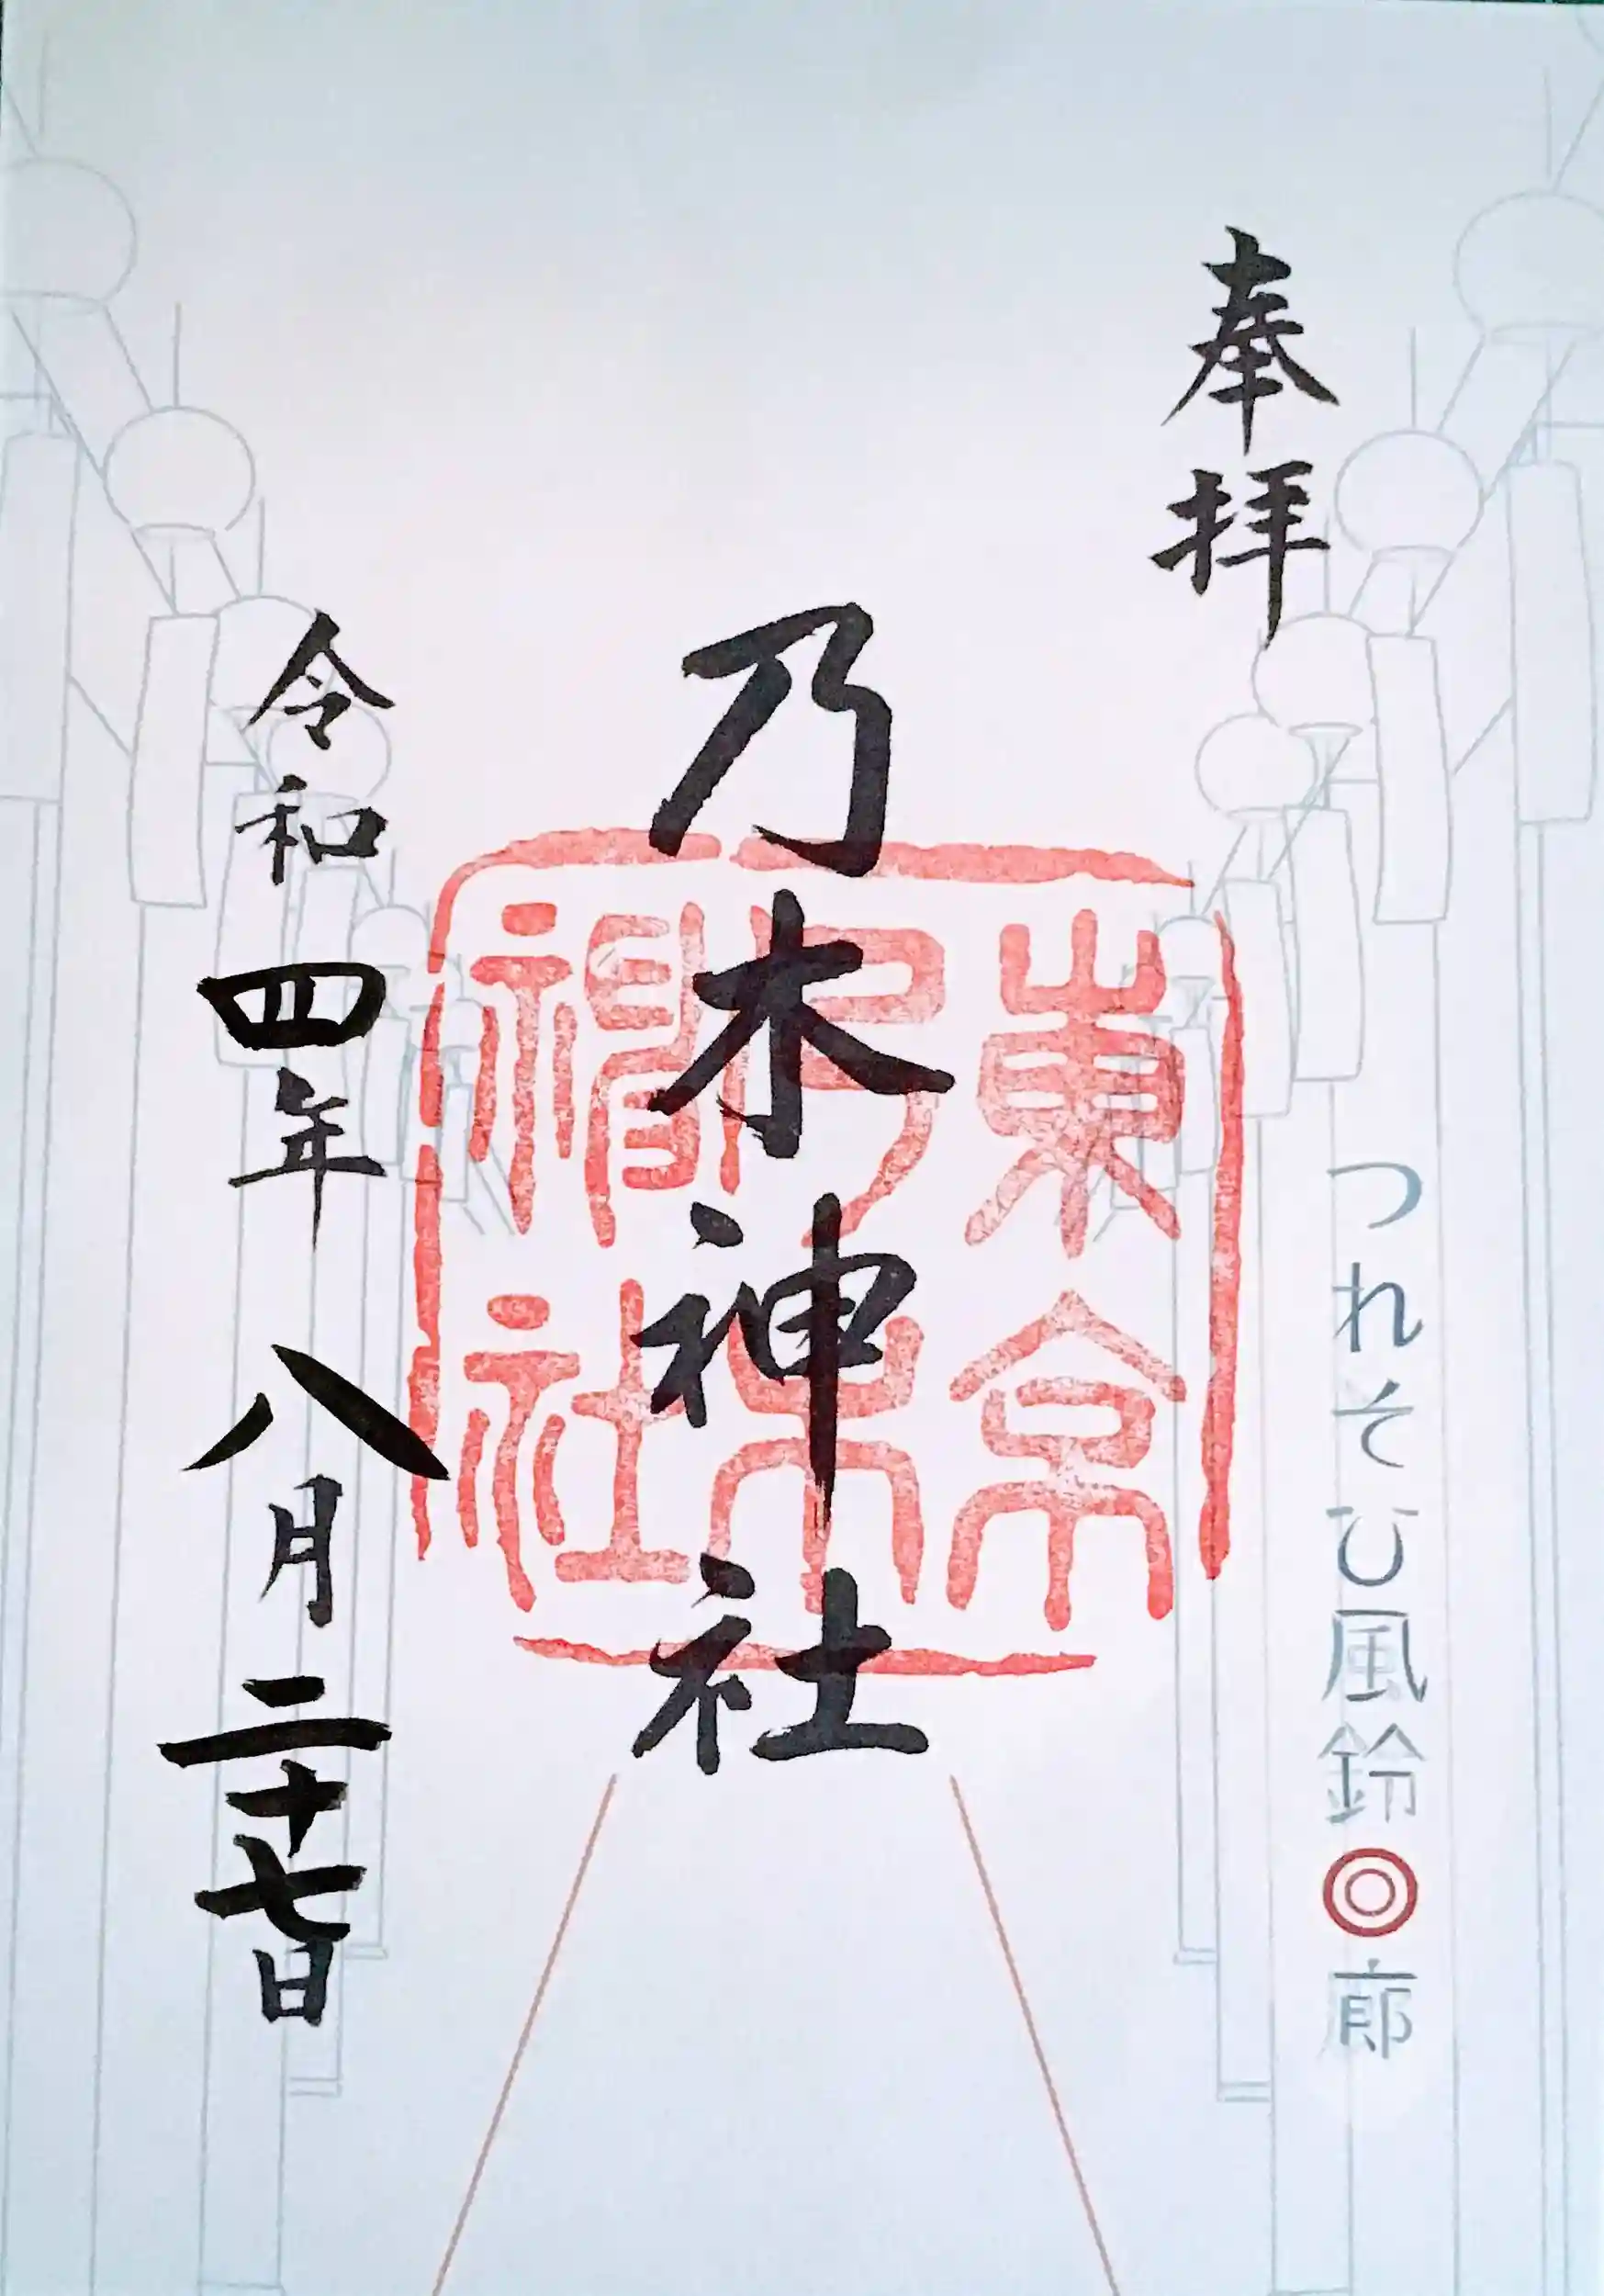 奉拝
つれそひ風鈴◎廊
乃木神社
東京
乃木
神社
令和四年八月二十七日